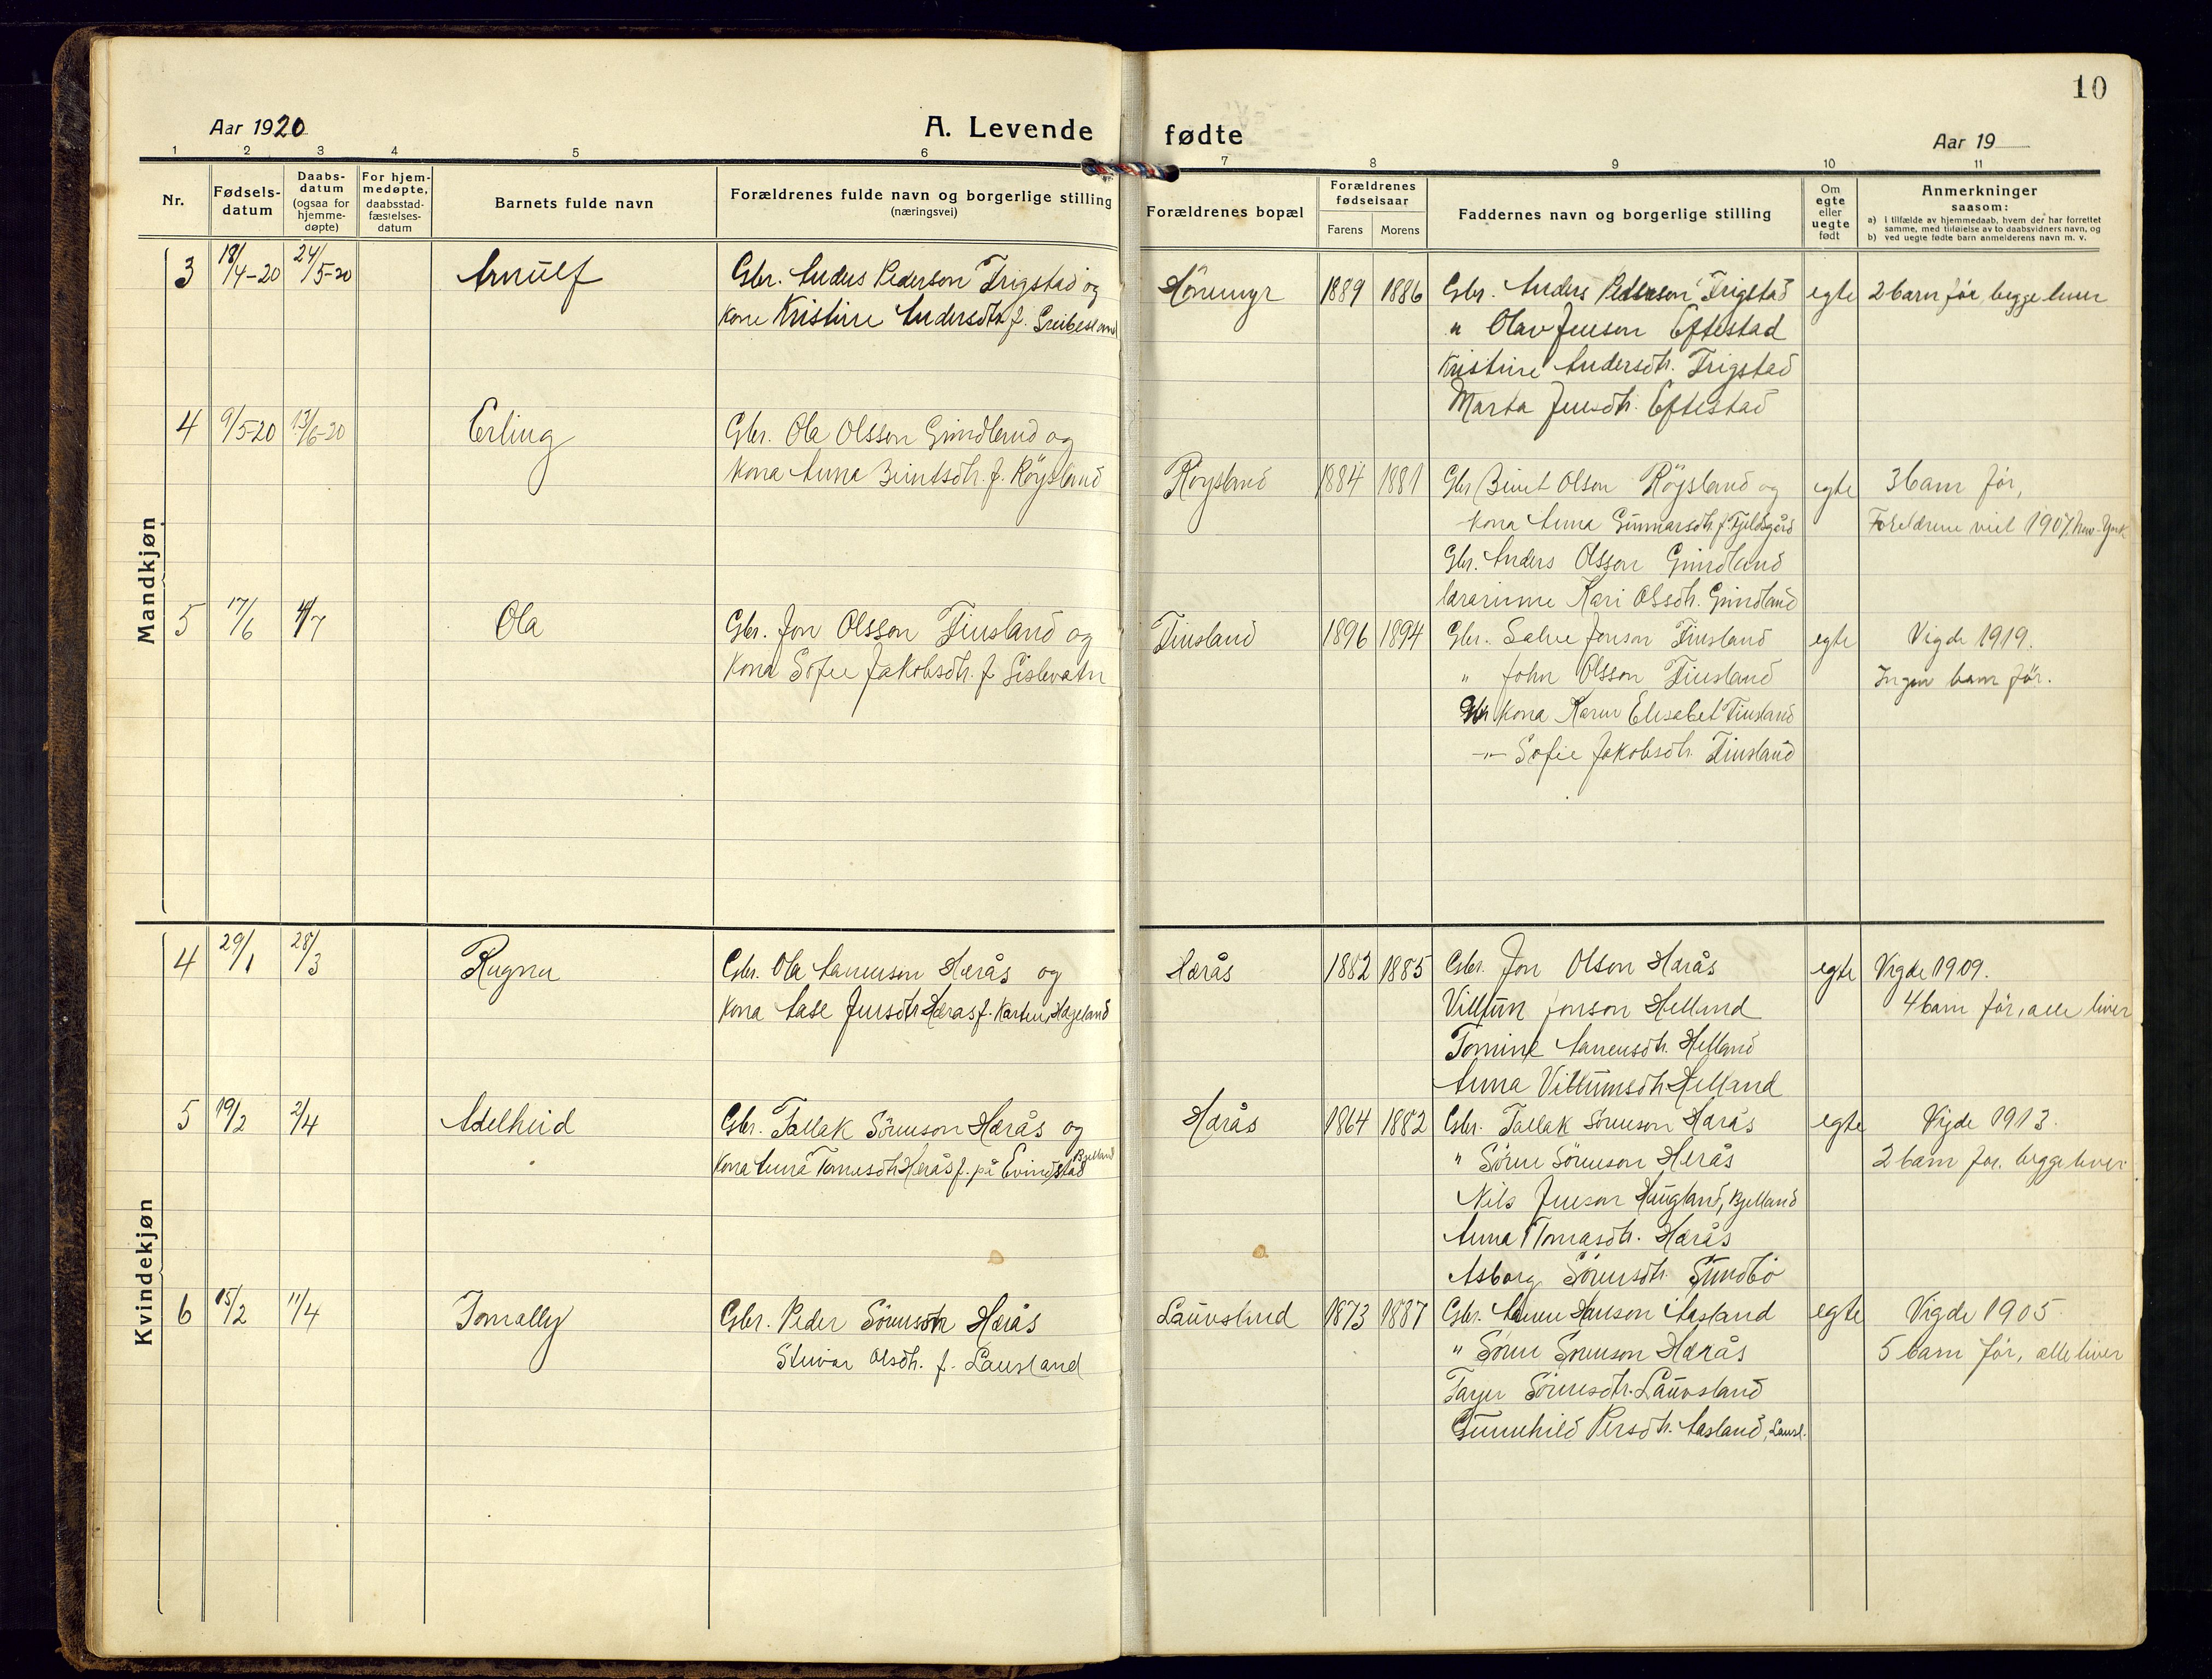 10
Aar 1920
A. Levende fødte
Aar 19
1 2 3 4 5 6 7 8 9 10 11
Nr.
Fødselsdatum
Daabsdatum (ogsaa for hjemmedøpte)
For hjemmedøpte, daabsstadfæstelsesdatum
Barnets fulde navn
Forældrenes fulde navn og borgerlige stilling
(næringsvei)
Forældrenes bopæl
Forældrenes fødselsaar
Farens Morens
Faddernes navn og borgerlige stilling
Om egte eller uegte født
Anmerkninger
saasom:
a) I tilfælde av hjemmedaab, hvem der har forrettet samme, med tilføielse av to daabsvidners navn, og
b) ved uegte fødte barn anmelderens navn m. v.
Mandkjøn
3 18/4-20 24/5-20 Arnulf Gbr. Anders Pederson Trigstad og Hönemyr 1889 1886 Gbr. Anders Pederson Trigstad egte 2 barn för, begge lever
Kone Kristine Andersdtr f. Greibesland
" Olav Jenson Eftestad
Kristine Andersdtr. Trigstad
Marta Jensdtr. Eftestad
4 9/5-20 13/6-20 Erling Gbr. Ola Olsson Grindland og
Kona Anna Beintsdtr. f. Röysland Röysland 1884 1881 Gbr Beint Olson Röysland og egte 3 barn för,
kona Anna Gunnarsdtr f. Fjeldsgård Foreldrene viet 1907, New-York
Gbr. Anders Olsson Grindland
lærarinne Kari Olsdtr. Grindland
5 17/6 4/7 Ola Gbr. Jon Olsson Tinsland og Tinsland 1896 1894 Gbr. Salve Jonson Tinsland egte Vigde 1919.
Kona Sofie Jakobsdtr. f. Gislevatn " John Olsson Tinsland Ingen barn för.
Kona Karen Elisabet Tinsland
-"- Sofie Jakobsdtr. Tinsland
Kvindekjøn
4 29/1 28/3 Ragna Gbr. Ola Aanenson Hærås og Hærås 1882 1885 Gbr. Jon Olson Hærås egte Vigde 1909.
Kona Aase Jensdtr Hærås f. Karten, Hageland Villum Jonson Helland 4 barn för, alle liver
Tomine Aanensdtr. Helland
Anna Villumsdtr. Helland
5 19/2 2/4 Adelheid Gbr. Tallak Sörenson Hærås og Hærås 1864 1882 Gbr. Tallak Sörenson Hærås egte Vigde 1913.
Kona Anna Tomesdtr Hærås f. på Evindstad Bjelland " Sören Sörenson Hærås 2 barn för. begge liver
Nils Jenson Haugland, Bjelland
Anna Tomasdtr. Hærås
Asborg Sörensdtr. Sundbö
6 15/2 11/4 Tomally Gbr. Peder Sörensson Hærås Lauvsland 1873 1887 Gbr. Aanen Hanson Aasland egte Vigde 1905
Olsdtr. f. Lauvsland " Sören Sörenson Hærås 5 barn för, alle liver
Sörensdtr. Lauvsland
Gunnhild Persdtr. Aasland, Lauvsl.